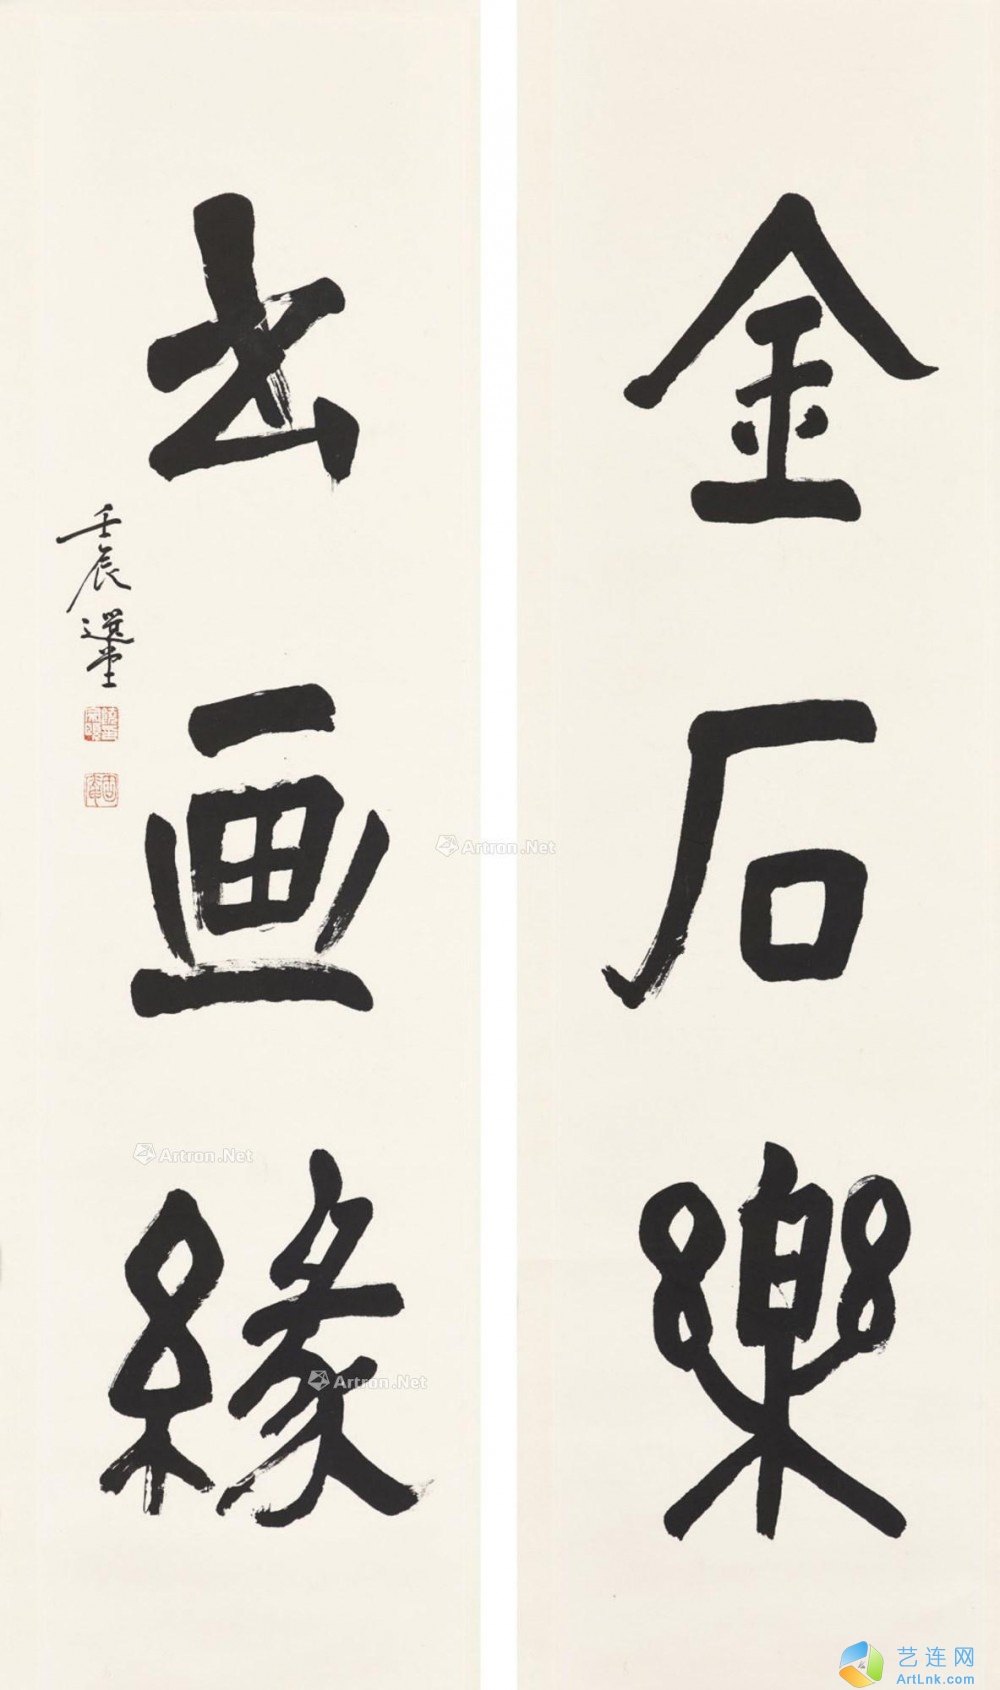 金石樂
書画緣
壬辰選堂
Artron.Net
Artron.Net
Artron.Net
艺连网
ArtLnk.com